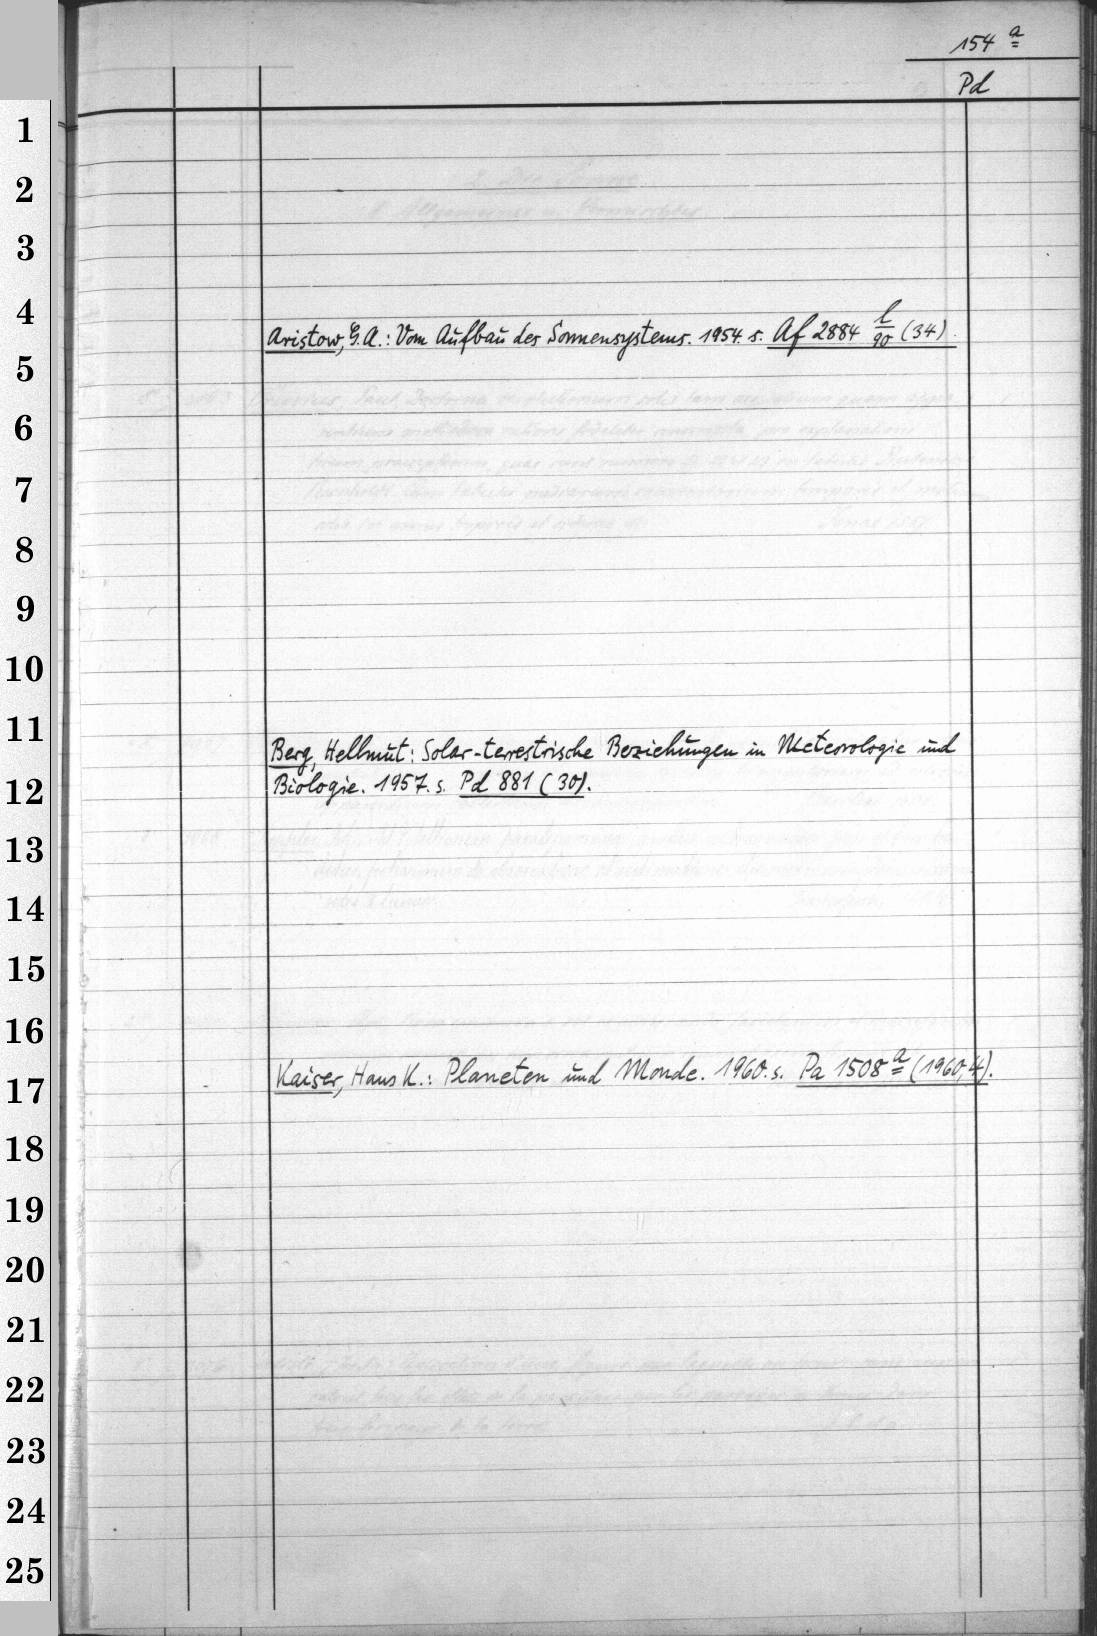 154 a
Pd
1
2
3
4
Aristow, G.A.: Vom Aufbau des Sonnensystems. 1954. s. Af 2884 l/90 (34).
5
6
7
8
9
10
11
Berg, Hellmut: Solar-terrestrische Beziehungen in Meteorologie und
Biologie. 1957. s. Pd 881 (30).
12
13
14
15
16
Kaiser, Hans K.: Planeten und Monde. 1960. s. Pa 1508 a (1960,4).
17
18
19
20
21
22
23
24
25